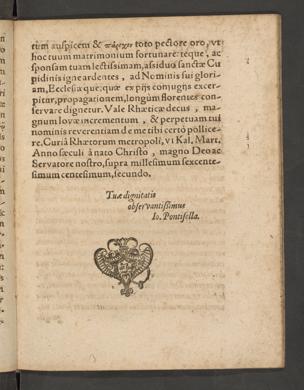 tum auspicem & πάρεχον toto pectore oro, vt
hoc tuum matrimonium fortunare: téque, ac
sponsam tuam lectissimam, assiduo sanctæ Cu
pidinis igne ardentes, ad Nominis sui glori-
am, Ecclesiæque: quæ ex pijs conjugns excer-
pitur, propagationem, longùm florentes con-
servare dignetur. Vale Rhæticæ decus, ma-
gnum Iovæ incrementum, & perpetuam tui
nominis reverentiam de me tibi certò pollice-
re. Curiâ Rhætorum metropoli, vi Kal. Mart.
Anno sæculi à nato Christo, magno Deo ac
Servatore nostro, supra millesimum sexcente-
simum centesimum, secundo.
Tuæ dignitatis
observantissimus
Io. Pontisella.